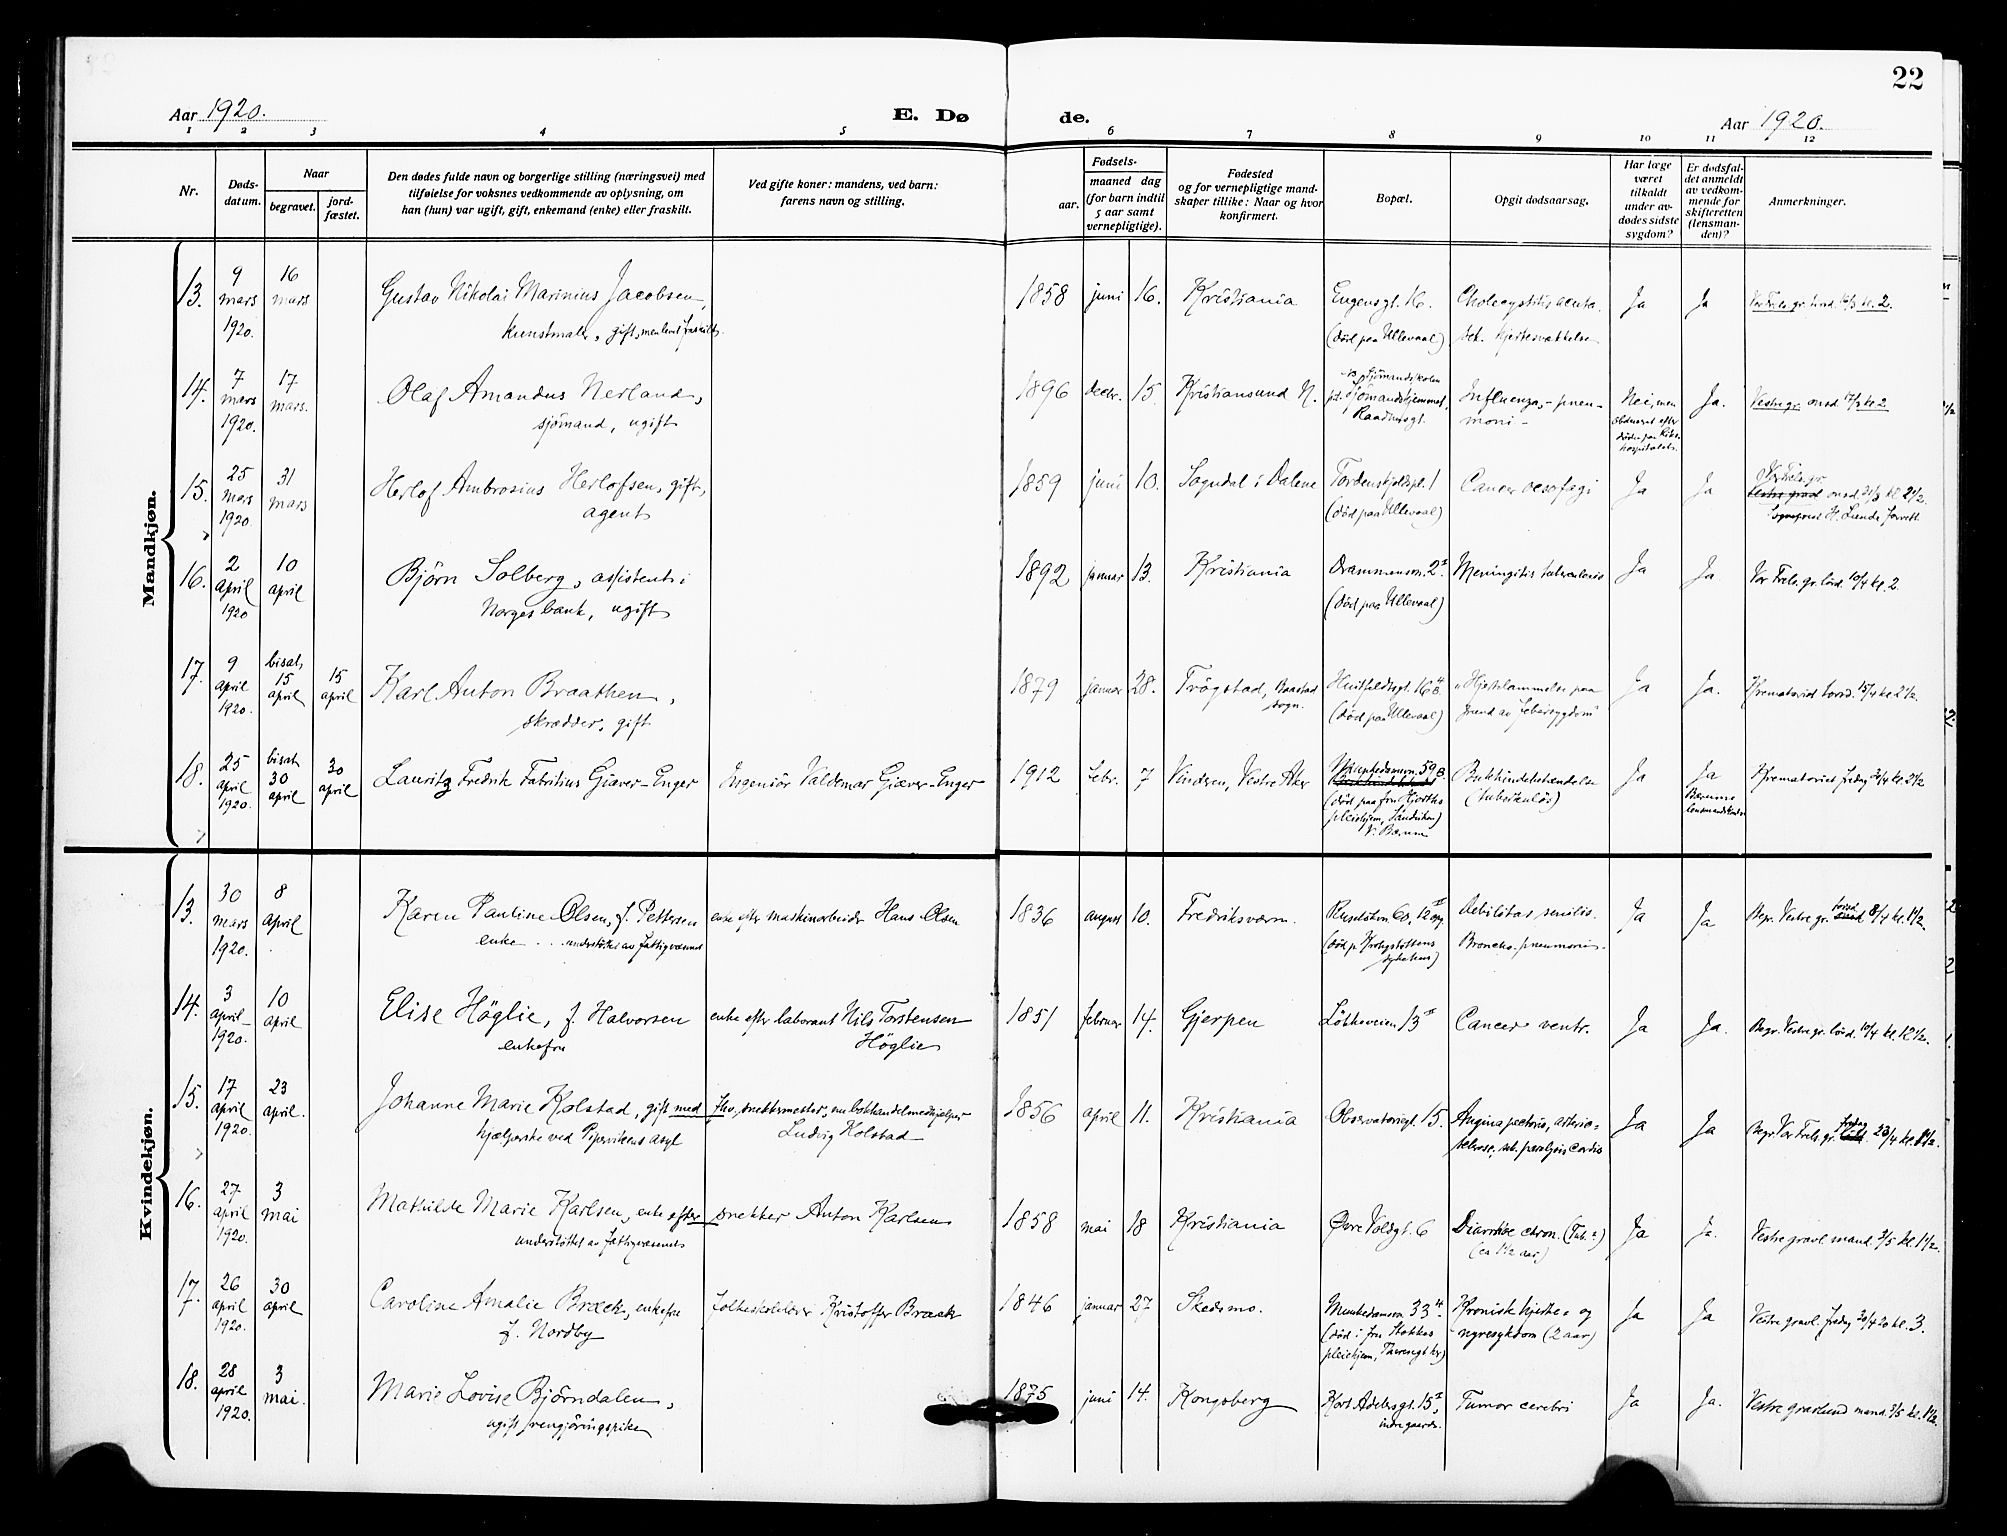 22
Aar 1920.
E. Dø
de.
Aar 1920.
1 2 3 4 5 6 7 8 9 10 11 12
Nr.
Døds-
datum.
Naar
begravet.
jord-
fæstet.
Den dødes fulde navn og borgerlige stilling (næringsvei) med
tilføielse for voksnes vedkommende av oplysning, om
han (hun) var ugift, gift, enkemand (enke) eller fraskilt.
Ved gifte koner: mandens, ved barn:
farens navn og stilling.
Fødsels-
aar.
maaned dag
(for barn indtil
5 aar samt
vernepligtige).
Fødested
og for vernepligtige mand-
skaper tillike: Naar og hvor
konfirmert.
Bopæl.
Opgit dødsaarsag.
Har læge
været
tilkaldt
under av-
dødes sidste
sygdom?
Er dødsfal-
det anmeldt
av vedkom-
mende for
skifteretten
(lensman-
den)?
Anmerkninger.
Mandkjøn.
13. 9 mars 1920. 16 mars
Gustav Nikolai Marinius Jacobsen,
kunstmaler, gift, men levet fraskilt.
1858 juni 16. Kristiania
Eugensgt. 16.
(död paa Ullevaal)
Cholecystitis acuta.
Ja Ja
Vor Frels. gr. 16/3 kl. 2.
14. 7 mars 1920. 17 mars.
Olaf Amandus Nerland,
sjömand, ugift
1896 decbr. 15. Kristiansund N.
Sjömandsskolen
pt. Sjömandshjemmet,
Raadhusgt.
Influenza, - pneu-
moni -
Nei, men
obduceret efter
döden paa Riks-
hospitalet.
Ja.
Vestre gr. onsd. 17/3 kl 2
15. 25 mars 1920. 31 mars
Herlof Ambrosius Herlofsen, gift,
agent
1859 juni 10. Sogndal i Dalene
Tordenskjoldspl. 1
(död paa Ullevaal)
Cancer oesofagi
Ja Ja
Vor Frels. gr.
Vestre grav onsd. 31/3 kl. 2 1/2.
Sogneprest H. Lunde forrett.
16. 2 april 1920 10 april
Björn Solberg, assistent i
Norges bank, ugift
1892 januar 13. Kristiania
Drammensvn. 2 I
(död paa Ullevaal)
Meningitis tuberculosis
Ja Ja
Vor Frels. gr. lörd. 10/4 kl. 2.
17. 9 april 1920. bisat 15 april 15 april
Karl Anton Braathen,
skrædder, gift
1879 januar 28. Trögstad, Baastad
sogn.
Huitfeldtsgt. 16 4
(död paa Ullevaal)
"Hjertelammelse paa
grund av febersygdom"
Ja Ja.
Krematoriet torsd. 15/4 kl 2 1/2.
18. 25 april 1920. bisat 30 april 30 april
Lauritz Fredrik Fabritius Giæver-Enger
Ingeniör Valdemar Giæver-Enger
1912 febr. 7 Vinderen, Vestre Aker
Munkedamsvn. 59 B.
(död paa fru Hjorths
pleiehjem, Sandviken)
V. Bærum
Bukhindebetændelse
(tuberkulös)
Ja Ja
Bærums
lensmandskontor
Krematoriet fredag 30/4 kl. 2 1/2
Kvindekjøn.
13. 30 mars 1920. 8 april
Karen Pauline Olsen, f. Pettersen
enke ... understöttet av fattigvæsenet
enke efter maskinarbeider Hans Olsen
1836 august 10. Fredriksværn.
Ruselökvn. 60, 12 opg.
(död p. Krohgstöttens
sykehus)
Debilitas senilis.
Broncho-pneumonia.
Ja Ja
Begr. Vestre gr. torsd. 8/4 kl. 1 1/2.
14. 3 april 1920. 10 april
Elise Höglie, f. Halvorsen
enkefru
enke efter laborant Nils Torstensen
Höglie
1851 februar 14. Gjerpen
Lökkeveien 13 II
Cancer ventr.
Ja Ja.
Begr. Vestre gr. lörd. 10/4 kl. 12 1/2.
15. 17 april 1920. 23 april.
Johanne Marie Kolstad, gift med
hjælperske ved Pipervikens asyl
fhv. snekkermester, nu bokhandelmedhjælper
Ludvig Kolstad
1856 april 11. Kristiania
Observatoriegt. 15.
Angina pectoris, arterio-
sclerose, paralysis cordis
Ja Ja
Begr. Vor Frels. gr. fredag 23/4 kl. 1 1/2.
16. 27 april 1920. 3 mai
Mathilde Marie Karlsen, enke efter
understöttet av fattigvæsenet
snekker Anton Karlsen
1858 mai 18 Kristiania
Övre Voldgt. 6
Diarrhoe chron. (Tub.?)
(ca 1 1/2 aar)
Ja Ja.
Vestre gravl. mand. 3/5 kl. 1 1/2.
17. 26 april 1920. 30 april
Caroline Amalie Bræck, enkefru
f. Nordby
folkeskolelærer Kristoffer Bræck
1846 januar 27 Skedsmo.
Munkedamsvn. 33 4
(död i fru Stokkes
pleiehjem, Theresesgt.)
Kronisk hjerte- og
nyresykdom (2 aar)
Ja Ja
Vestre gravl. fredag 30/4 20 kl. 3.
18. 28 april 1920. 3 mai.
Marie Lovise Björndalen,
ugift, rengjöringspike
1875 juni 14. Kongsberg
Kort Adelersgt. 15 I,
indre gaard.
Tumor cerebri
Ja Ja.
Vestre gravlund mand. 3/5 kl. 1 1/2.